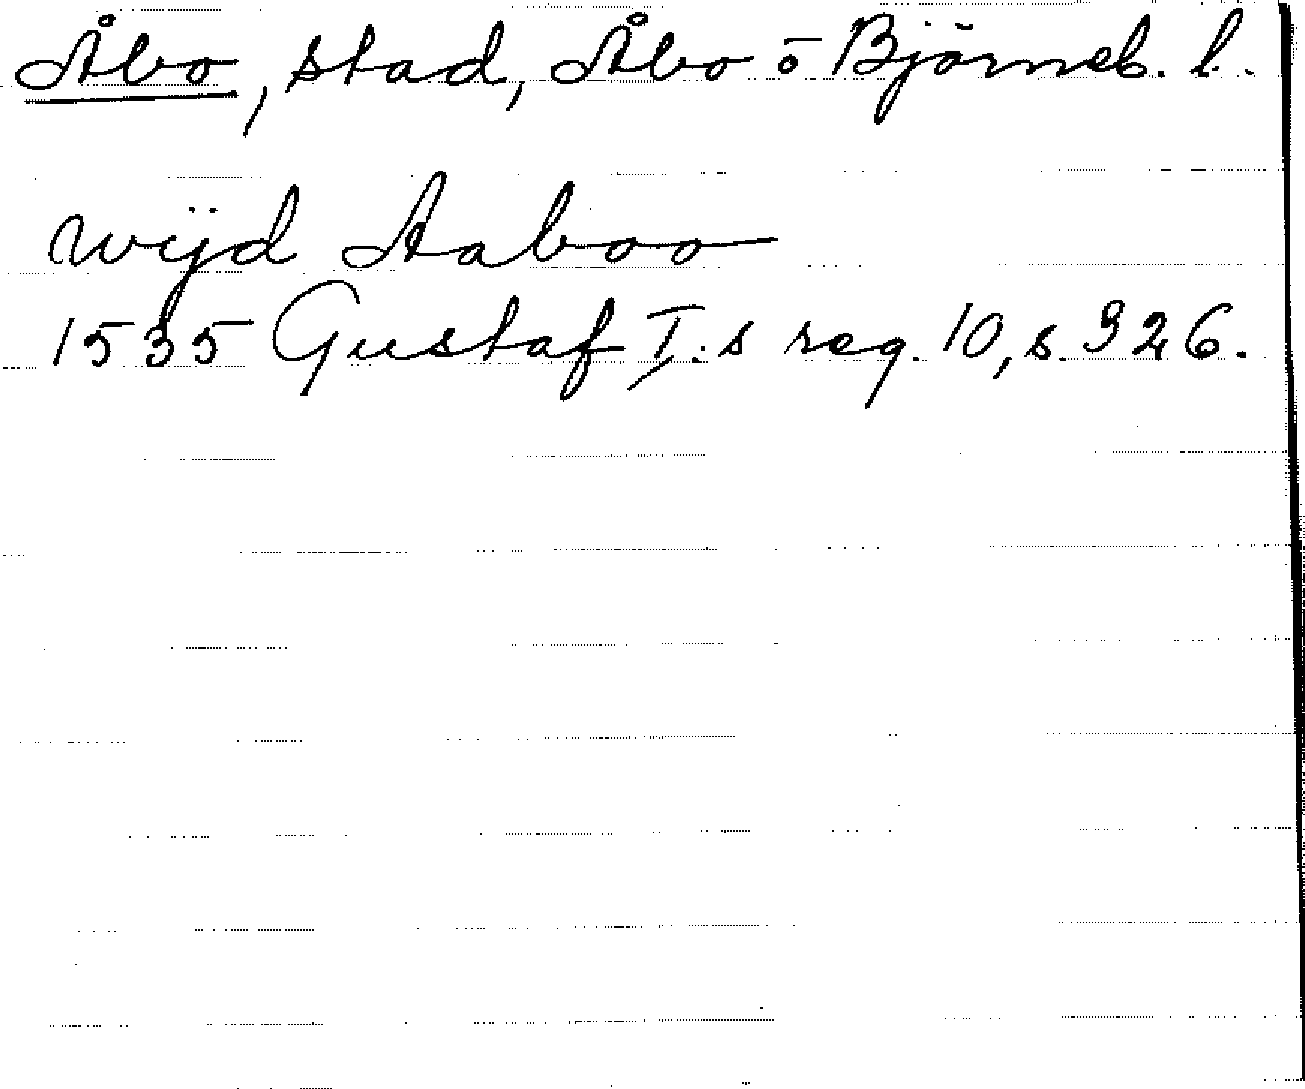 Åbo, stad, Åbo o Björneb. l.
wijd Aaboo
1535 Gustaf I:s reg. 10, s. 326.